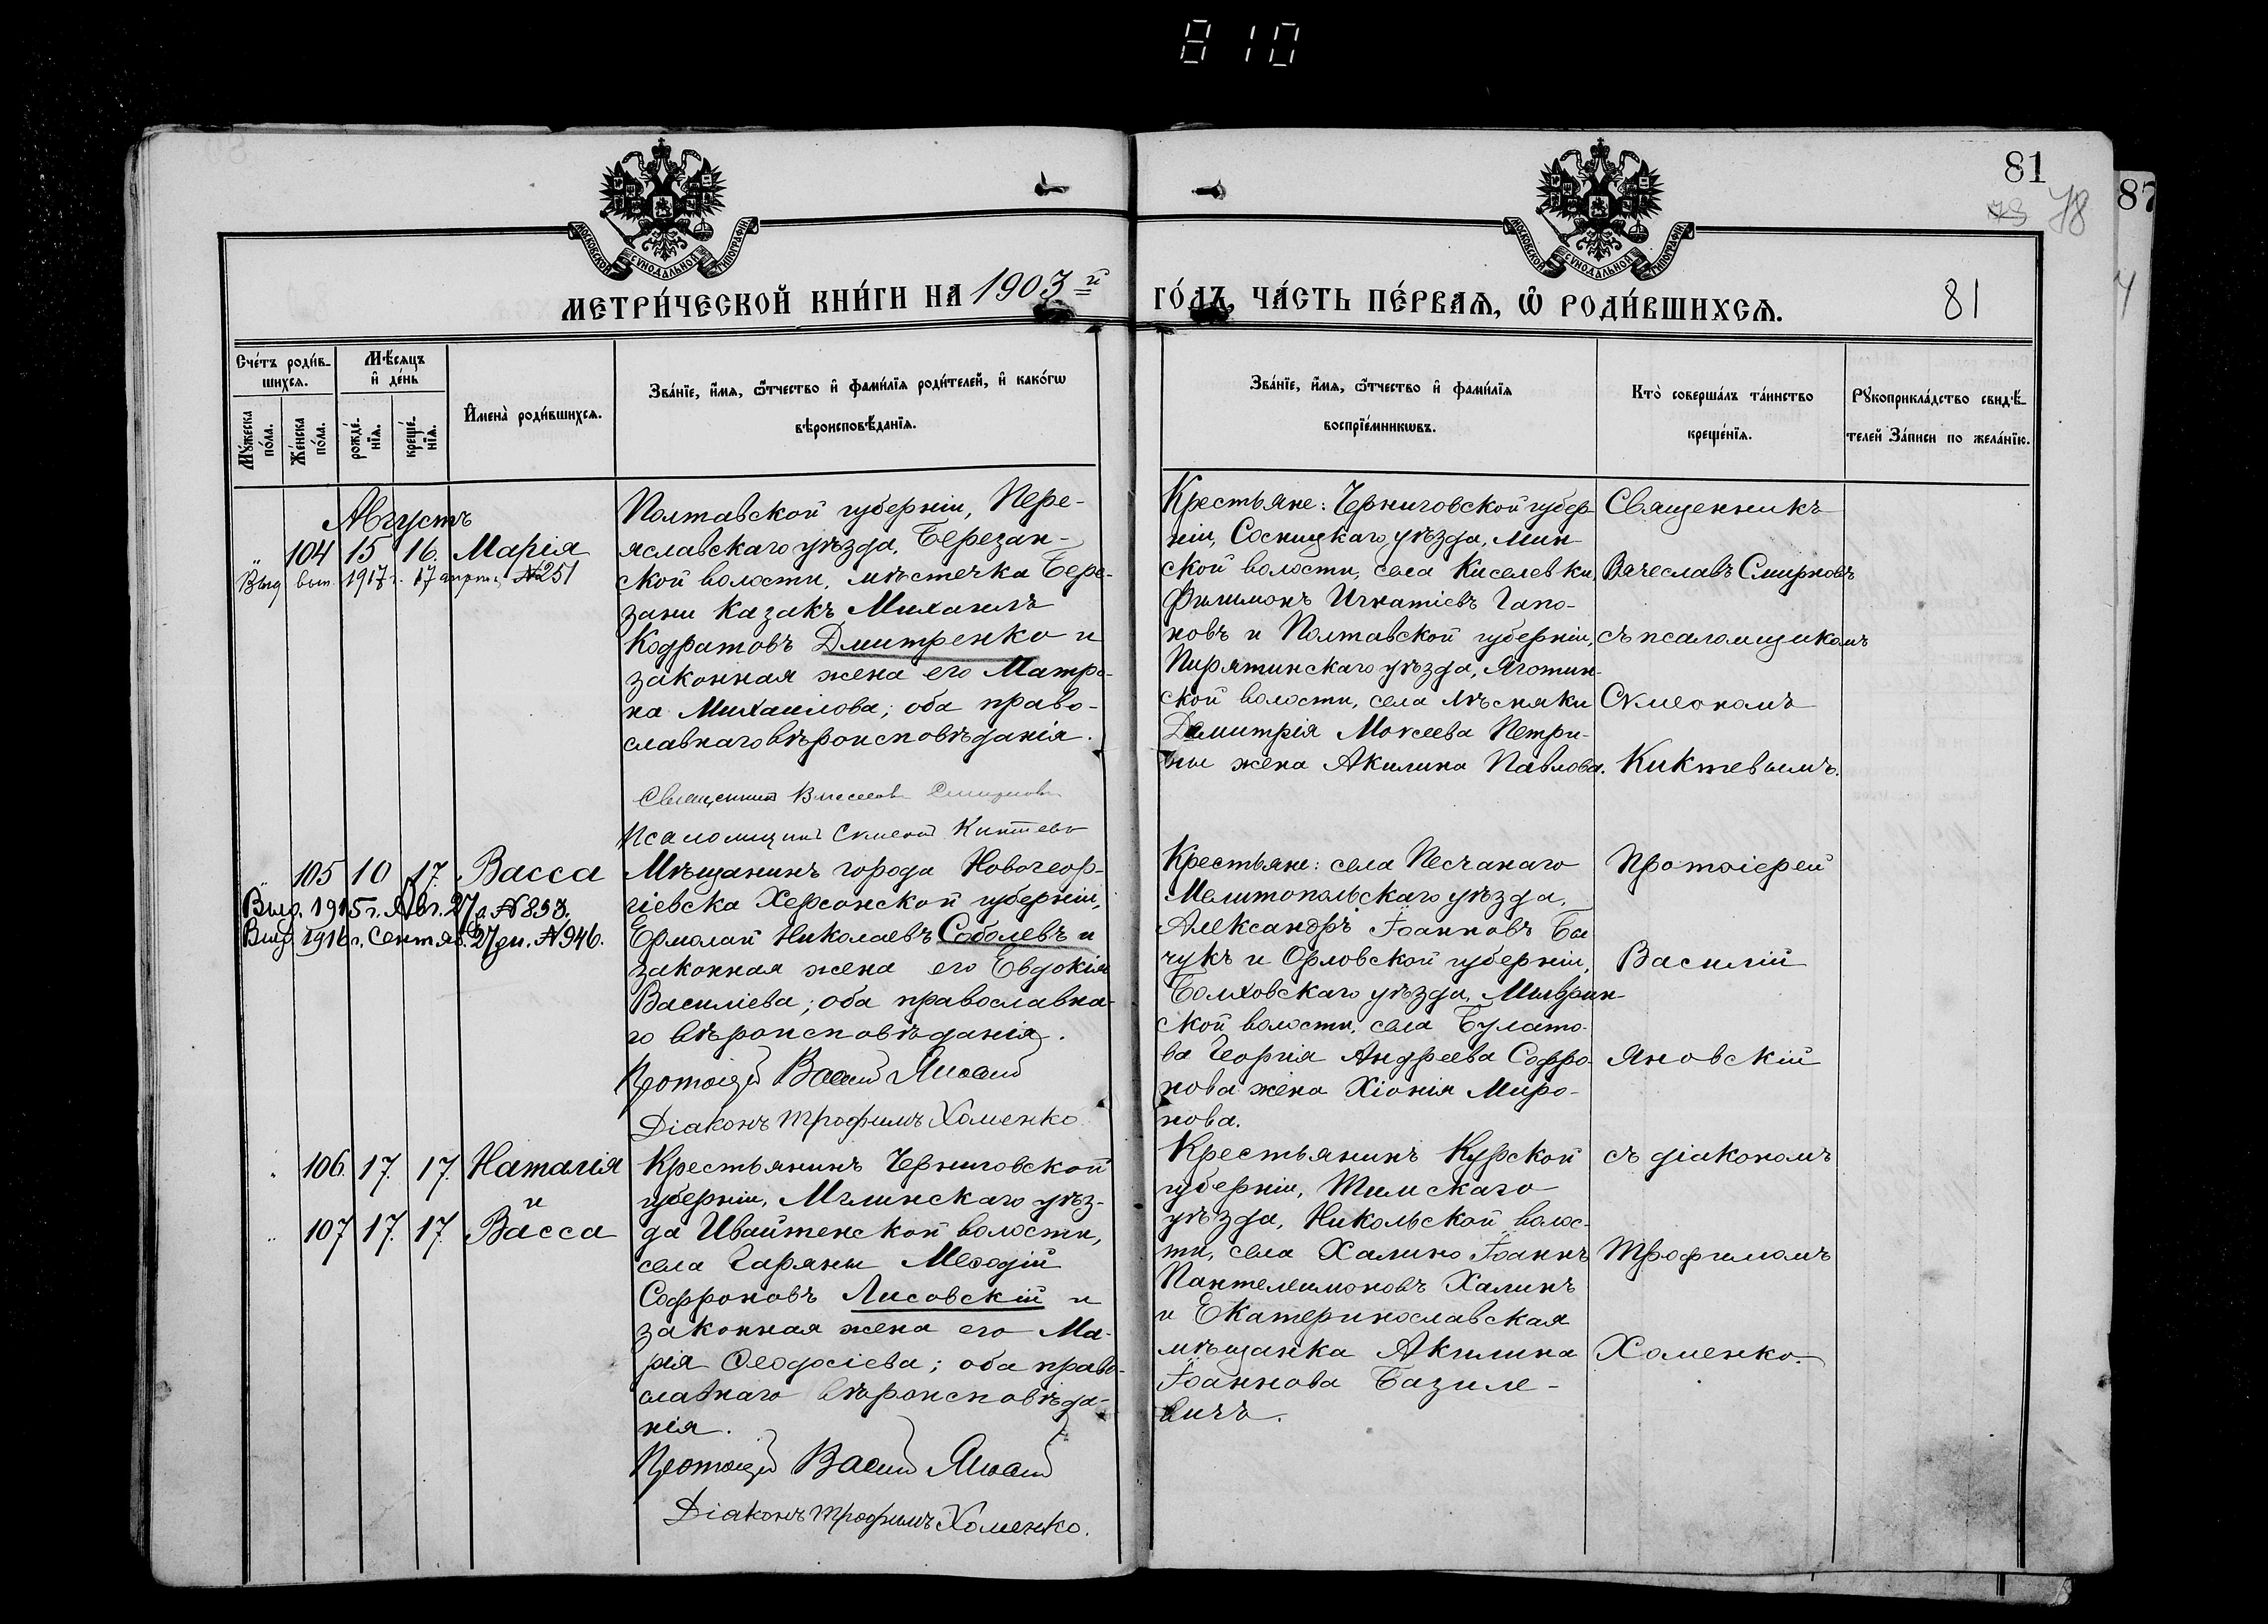 810
81
78
87
МОСКОВСКОЙ СѴНОДАЛЬНОЙ ТИПОГРАФІИ
МОСКОВСКОЙ СѴНОДАЛЬНОЙ ТИПОГРАФІИ
МЕТРИ́ЧЕСКОЙ КНИ́ГИ НА 1903-й
ГО́ДЪ, ЧА́СТЬ ПЕ́РВАЯ, Ѽ РОДИ́ВШИХСѦ.
81
Сче́тъ роди́в-
шихсѧ.
Мѣ́сѧцъ
и҆ де́нь
Мꙋ́жеска
по́ла.
Же́нска
по́ла.
рожде́-
нїѧ.
креще́-
нїѧ.
И҆мена̀ роди́вшихсѧ.
Зва́нїе, и҆́мѧ, ѻ҆́тчество и҆ фами́лїѧ роди́телей, и҆ како́гѡ
вѣроисповѣ́данїѧ.
Зва́нїе, и҆́мѧ, ѻ҆́тчество и҆ фами́лїѧ
воспрїе́мникѡвъ.
Кто̀ соверша́лъ та́инство
креще́нїѧ.
Рꙋкоприкла́дство свидѣ́-
телей за́писи по жела́нїю.
Августъ
" 104 15 16. Марія
Выд. вып. 1917 г. 17 апрѣл. №251
Полтавской губерніи, Пере-
яславскаго уѣзда, Березан-
ской волости, мѣстечка Бере-
зани казакъ Михаилъ
Кодратовъ Дмитренко и
законная жена его Матро-
на Михаилова; оба право-
славнаго вѣроисповѣданія.
Священникъ Вячеславъ Смирновъ
Псаломщикъ Сѵмеонъ Киктевъ
Крестьяне: Черниговской губер
ніи, Сосницкаго уѣзда, Мин
ской волости, села Киселевки,
Филимонъ Игнатіевъ Гапо-
новъ и Полтавской губерніи,
Пирятинскаго уѣзда, Яготин-
ской волости, села Лѣсняки
Димитрія Моѵсеева Петри-
ны жена Акилина Павлова.
Священникъ
Вячеславъ Смирновъ
съ псаломщикомъ
Сѵмеономъ
Киктевымъ.
" 105 10 17. Васса
Выд. 1915 г. Авг. 27 д. №853.
Выд. 1916 г. Сентяб. 27 дн. №946.
Мѣщанинъ города Новогеор-
гіевска Херсонской губерніи,
Ермолай Николаевъ Соболевъ и
законная жена его Евдокія
Василіева; оба православна-
го вѣроисповѣданія.
Протоіерей Василій Яновскій
Діаконъ Трофимъ Хоменко
Крестьяне: села Песчанаго
Мелитопольскаго уѣзда,
Александръ Іоанновъ Ба
чукъ и Орловской губерніи,
Болховскаго уѣзда, Мывринской
ской волости, села Булато-
ва Георгія Андреева Софро-
нова жена Хіонія Миро-
нова.
Протоіерей
Василій
Яновскій
" 106. 17. 17. Наталія
и
" 107 17. 17. Васса
Крестьянинъ Черниговской
губерніи, Мглинскаго уѣз-
да Ивайтенской волости,
села Гаряны Меѳодій
Софроновъ Лисовскій и
законная жена его Ма-
рія Ѳеодосіева; оба право-
славнаго вѣроисповѣда-
нія.
Протоіерей Василій Яновскій
Діаконъ Трофимъ Хоменко.
Крестьянинъ Курской
губерніи, Тимскаго
уѣзда, Никольской волос-
ти, села Халино Іоаннъ
Пантелеимоновъ Халинъ
и Екатеринославская
мѣщанка Акилина
Іоаннова Базиле-
вичъ.
съ діакономъ
Трофимомъ
Хоменко.